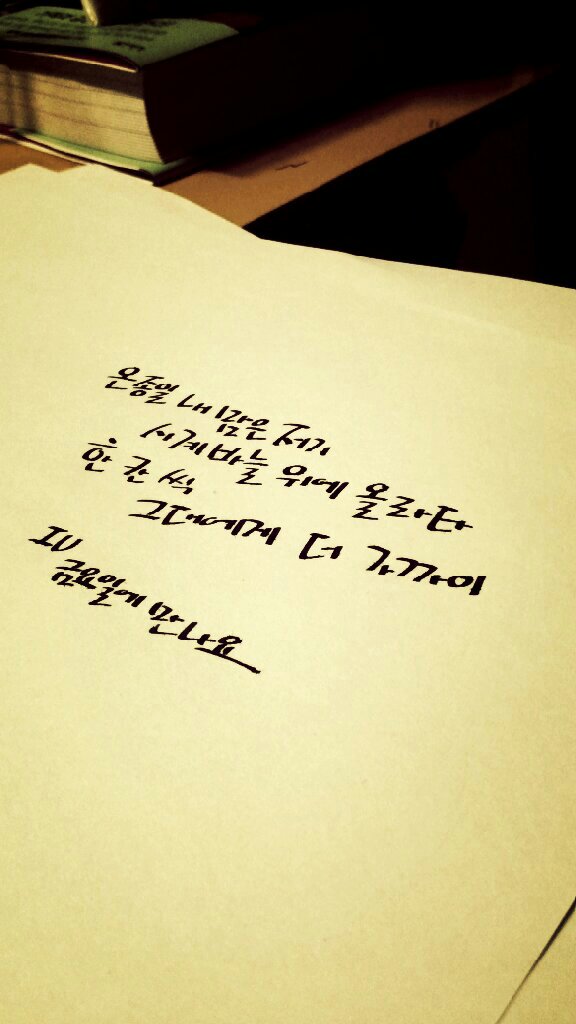 온종일 내 맘은 저기
시계바늘 위에 올라타
한 칸 씩
그대에게 더 가까이
IU
금요일에 만나요